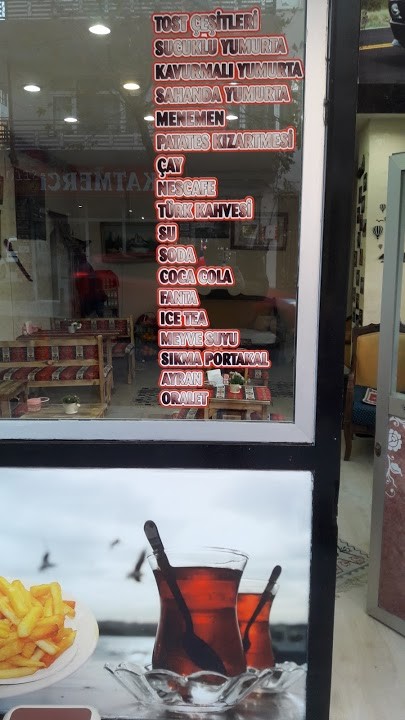 TOST ÇEŞİTLERİ
SUCUKLU YUMURTA
KAVURMALI YUMURTA
SAHANDA YUMURTA
MENEMEN
PATATES KIZARTMESİ
ÇAY
NESCAFE
TÜRK KAHVESİ
SU
SODA
COCA COLA
FANTA
ICE TEA
MEYVE SUYU
SIKMA PORTAKAL
AYRAN
ORALET
KATMERCİ